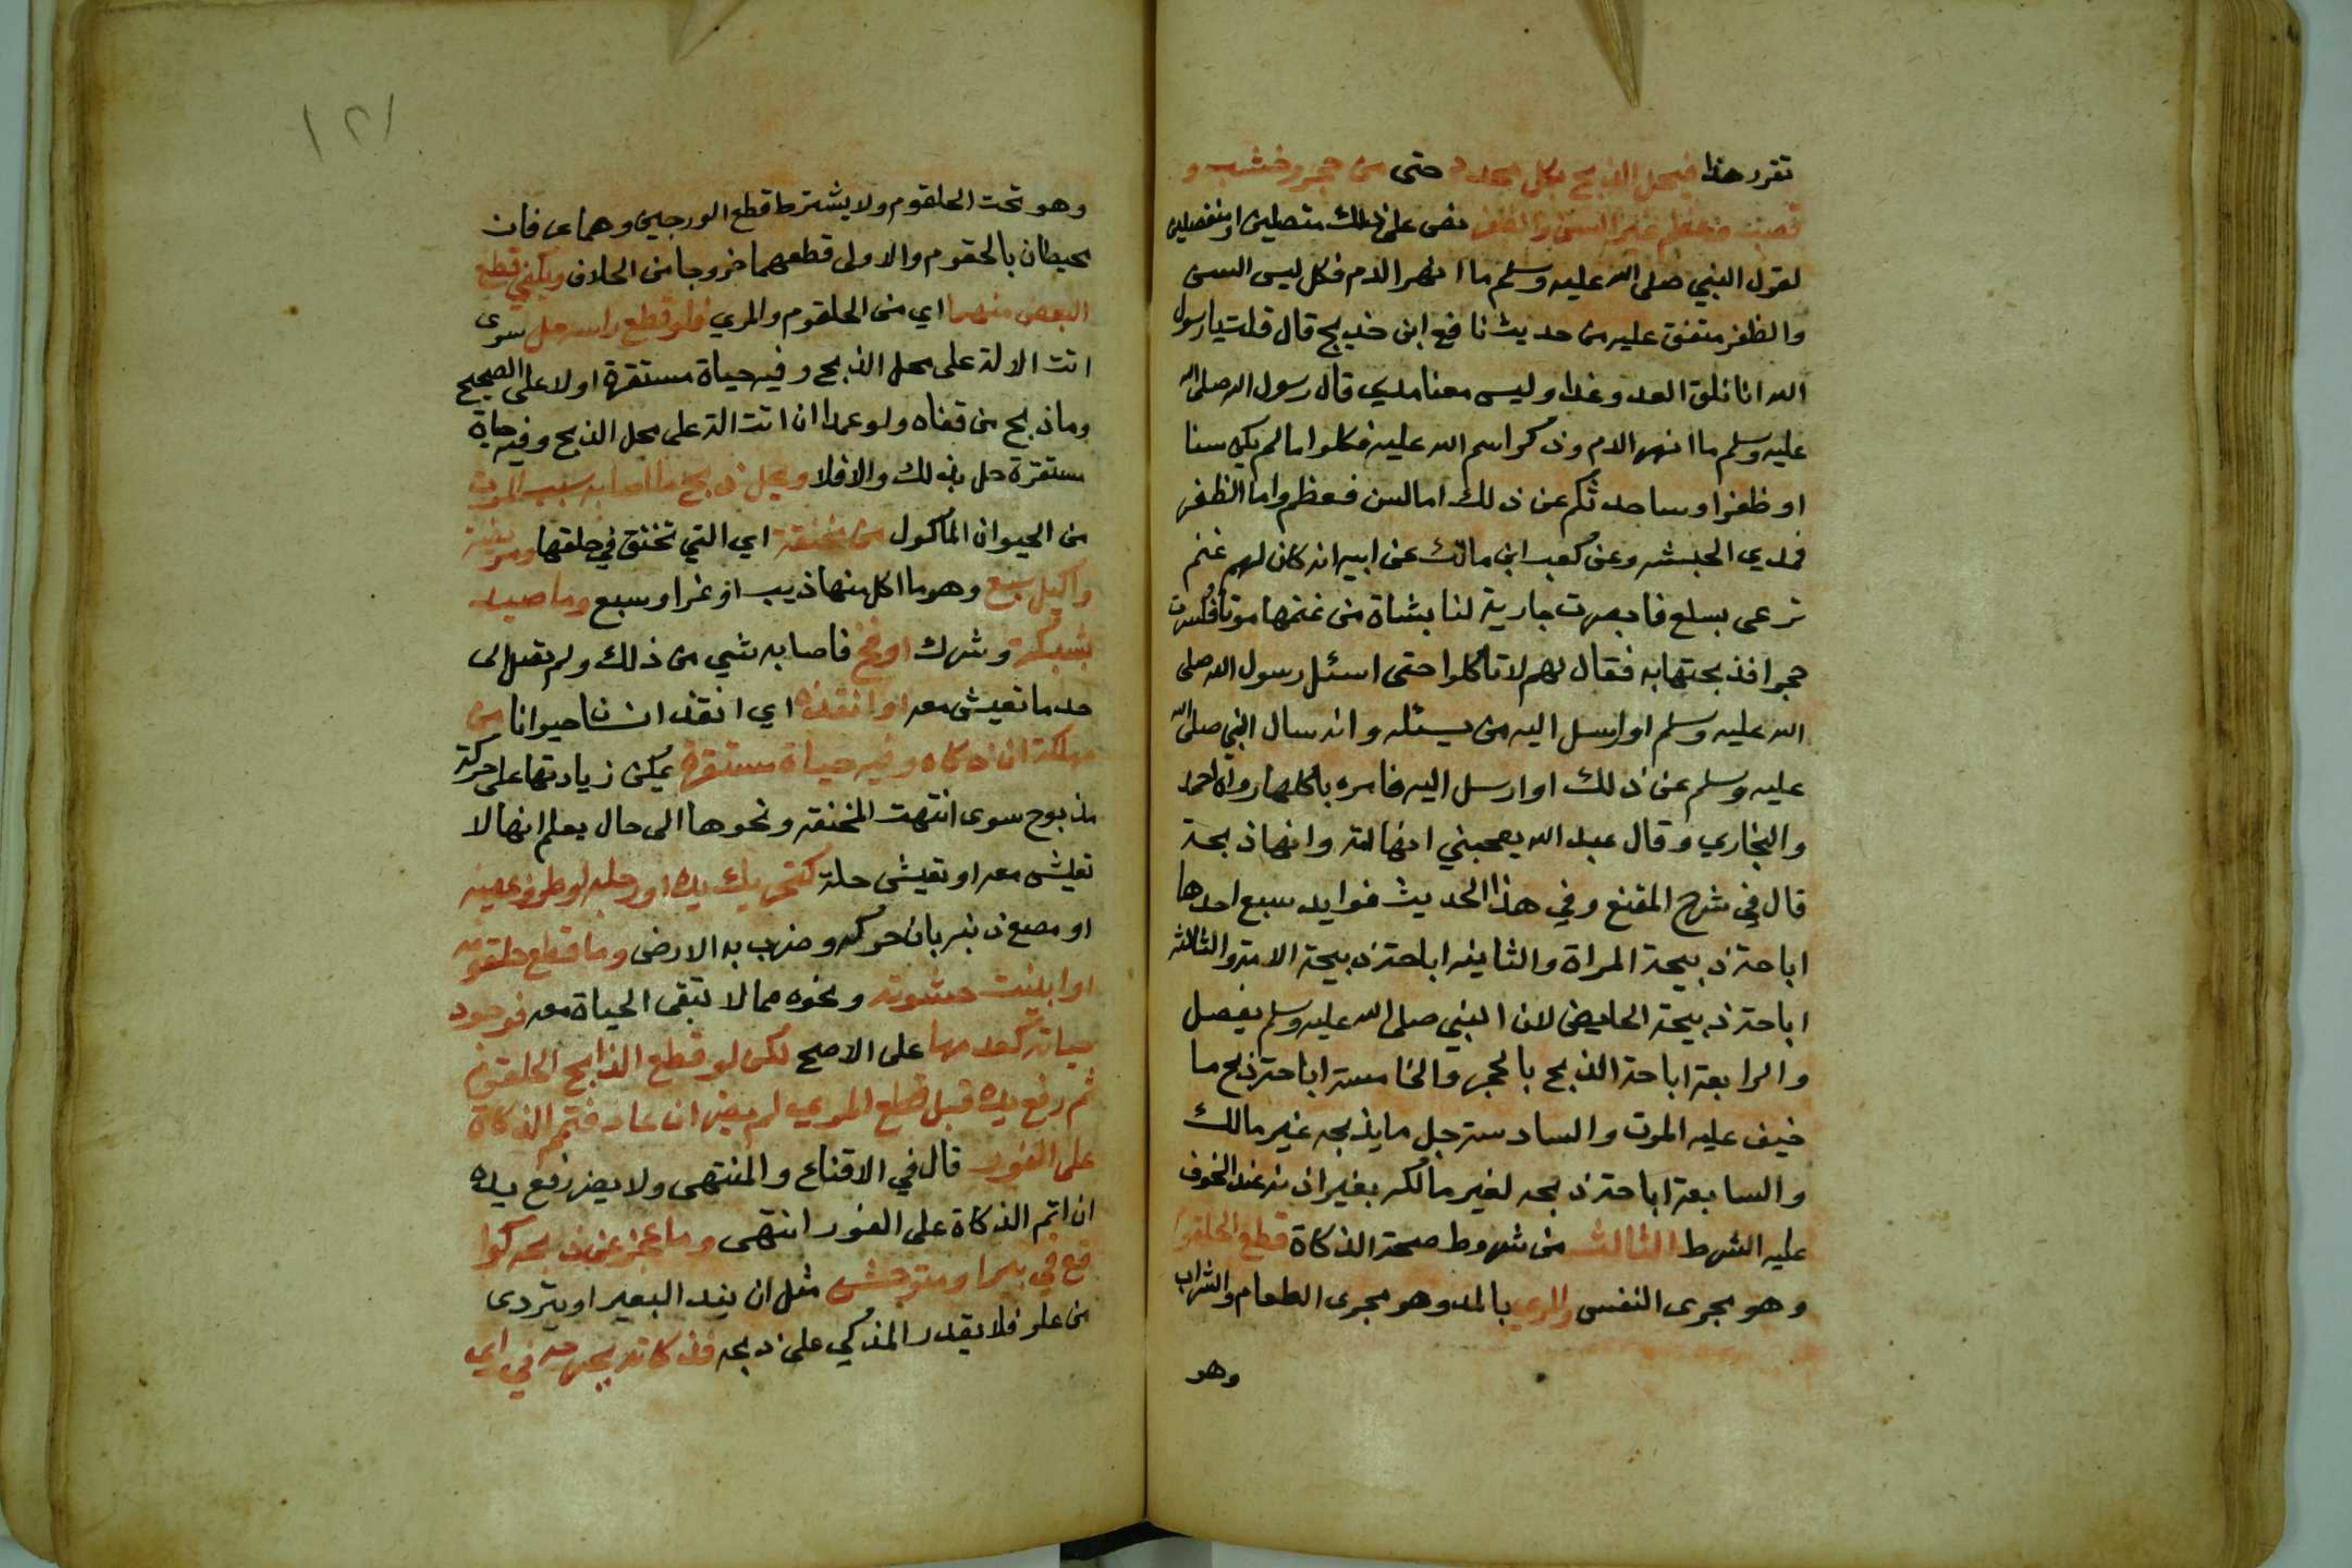 تقرر هذا فيحل الذبح بكل محدد حتى من حجر وخشب و
قصب وعظم غير السن والظفر نص على ذلك متصلين او منفصلين
لقول النبي صلى الله عليه وسلم ما انهر الدم فكل ليس السن
والظفر متفق عليه من حديث نافع ابن خديج قال قلت يا رسول
الله انا نلق العدو غدا وليس معنا مدي قال رسول الله صلى الله
عليه وسلم ما انهر الدم وذكر اسم الله عليه فكلوا ما لم يكن سنا
او ظفرا وساحدثكم عن ذلك اما السن فعظم واما الظفر
فمدي الحبشه وعن كعب ابن مالك عن ابيه انه كان لهم غنم
ترعى بسلع فابصرت جارية لنا بشاة من غنمها موتا فكسرت
حجرا فذبحتها به فقال لهم لا تاكلوا حتى اسئل رسول الله صلى
الله عليه وسلم او ارسل اليه من يسئله وانه سال النبي صلى الله
عليه وسلم عن ذلك او ارسل اليه فامره باكلها رواه احمد
والبخاري وقال عبد الله يعجبني انها امة وانها ذبحة
قال في شرح المقنع وفي هذا الحديث فوايد سبع احدها
اباحة ذبيحة المراة والثانيه اباحة ذبيحة الامة والثالثه
اباحة ذبيحة الحايض لان النبي صلى الله عليه وسلم يفصل
والرابعة اباحة الذبح بالحجر والخامسة اباحة ذبح ما
خيف عليه الموت والسادسة حل ما يذبحه غير مالك
والسابعة اباحة ذبحه لغير مالكه بغير اذنه عند الخوف
عليه الشرط الثالث من شروط صحة الذكاة قطع الحلقوم
وهو مجرى النفس والمري بالمد وهو مجرى الطعام والشراب
وهو
١٢١
وهو تحت الحلقوم ولا يشترط قطع الورجين وهما عرقان
محيطان بالحقوم والاولى قطعهما خروجا من الخلاف ويكفي قطع
البعض منهما اي من الحلقوم والمري فلو قطع راسه حل سوى
اتت الالة على محل الذبح وفيه حياة مستقرة اولا على الصحيح
وما ذبح من قفاه ولو عمدا ان اتت الة على محل الذبح وفيه حياة
مستقرة حل بذلك والا فلا ويحل ذبح ما اصابه سبب الموت
من الحيوان الماكول من منخنقة اي التي تختنق في حلقها ومريضة
واكيل سبع وهو ما اكل منها ذيب او نمر او سبع وما صيد
بشبكة وشرك او فخ فاصابه شي من ذلك ولم تصل الى
حد ما تعيش معه او انقذه اي انقذ انسانا حيوانا من
مهلكة ان ذكاه وفيه حياة مستقرة يمكن زيادتها على حركة
مذبوح سوى انتهت المنخنقه ونحوها الى حال يعلم انها لا
تعيش معه او تعيش حلة كتحريك يده او رجله او طرف عينه
او مصع ذنبه بان حركه وضرب به الارض وما قطع حلقومه
او ابينت حشوته ونحوه مما لا تبقى الحياة معه فوجود
حياته كعدمها على الاصح لكن لو قطع الذابح الحلقوم
ثم رفع يده قبل قطع المري لم يضر ان عاد فتمم الذكاة
على الفور قال في الاقناع والمنتهى ولا يضر رفع يده
ان اتم الذكاة على الفور انتهى وما عجز عن ذبحه كوا
قع في بير او متوحش مثل ان يند البعير او يتردى
من علو فلا يقدر المذكي على ذبحه فذكاته بجرحه في اي